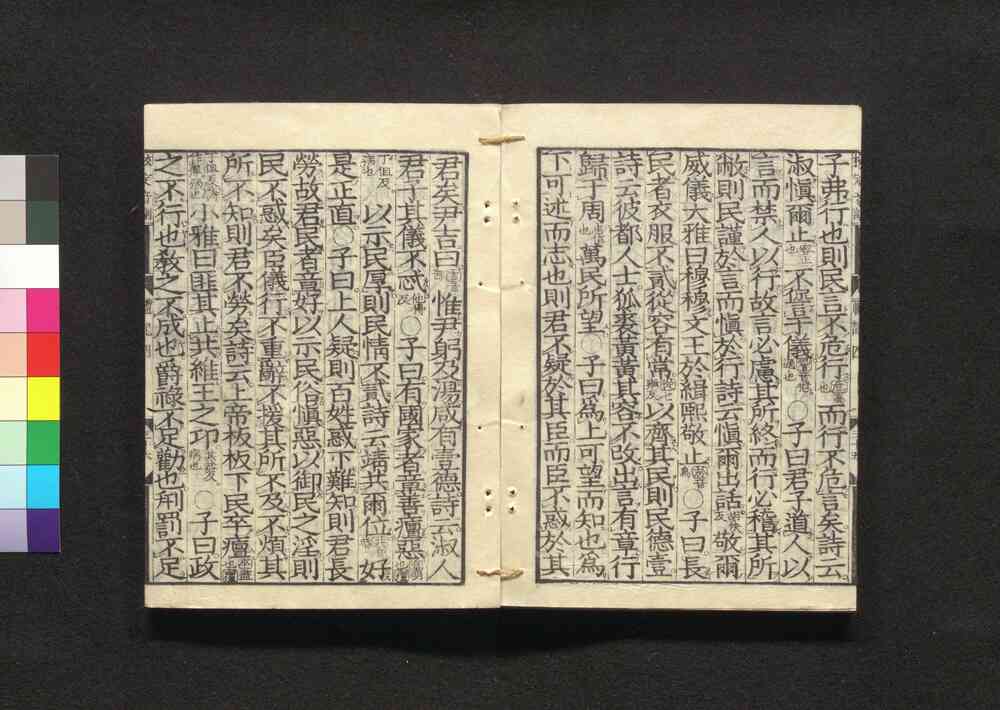 子弗行也則民言不危行而行不危言矣詩云
淑慎爾止不諐于儀〇子曰君子道人以
言而禁人以行故言必慮其所終而行必稽其所
敝則民謹於言而慎於行詩云慎爾出話敬爾
威儀大雅曰穆穆文王於緝熙敬止〇子曰長
民者衣服不貳從容有常以齊其民則民德壹
詩云彼都人士狐裘黃黃其容不改出言有章行
歸于周萬民所望〇子曰為上可望而知也為
下可述而志也則君不疑於其臣而臣不惑於其
君矣尹吉曰惟尹躬及湯咸有壹德詩云淑人
君子其儀不忒〇子曰有國家者章善癉惡
以示民厚則民情不貳詩云靖共爾位好
是正直〇子曰上人疑則百姓惑下難知則君長
勞故君民者章好以示民俗慎惡以御民之淫則
民不惑矣臣儀行不重辭不援其所不及不煩其
所不知則君不勞矣詩云上帝板板下民卒癉
小雅曰匪其止共維王之邛〇子曰政
之不行也教之不成也爵祿不足勸也刑罰不足